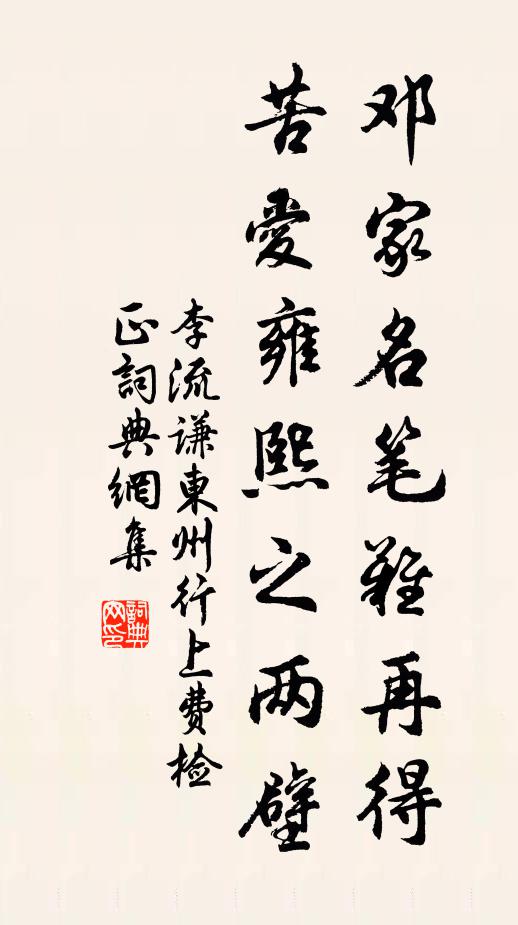 邓家名笔難再得
苦愛雍熙之两壁
李流谦東州行上費檢
正詞典網集
詞典网印